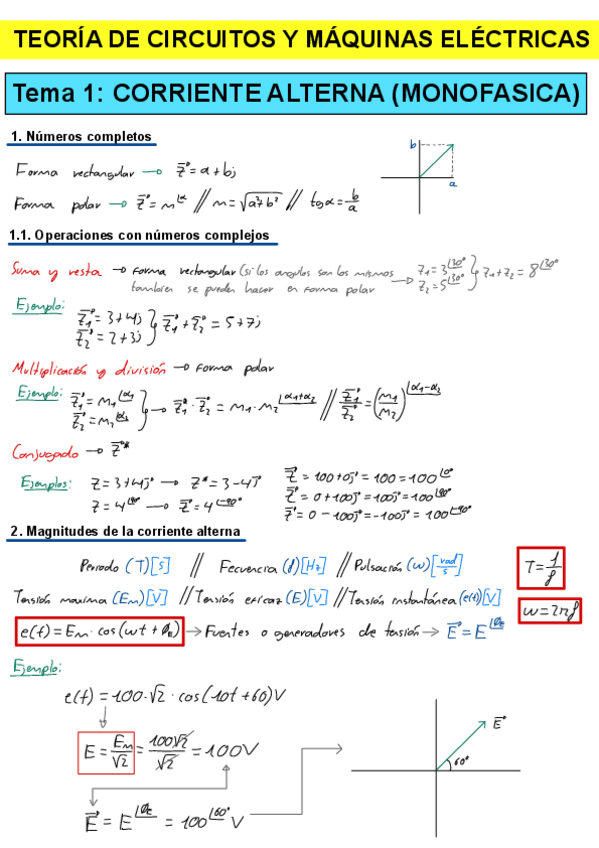 TEORÍA DE CIRCUITOS Y MÁQUINAS ELÉCTRICAS
Tema 1: CORRIENTE ALTERNA (MONOFASICA)
1. Números completos
Forma rectangular → Z⃗ = a + bj
b
a
Forma polar → Z⃗ = m∠α // m = √(a²+b²) // tgα = b/a
1.1. Operaciones con números complejos
Suma y resta → forma rectangular (si los angulos son los mismos
tambien se pueden hacer en forma polar → Z₁ = 3∠30° Z₂ = 5∠30° } Z₁ + Z₂ = 8∠30°
Ejemplo: Z⃗₁ = 3 + 4j
Z⃗₂ = 2 + 3j } Z⃗₁ + Z⃗₂ = 5 + 7j
Multiplicación y división → forma polar
Ejemplo: Z⃗₁ = m₁∠α₁
Z⃗₂ = m₂∠α₂ } → Z⃗₁ · Z⃗₂ = m₁ · m₂ ∠α₁+α₂ // Z⃗₁/Z⃗₂ = (m₁/m₂)∠α₁-α₂
Conjugado → Z⃗*
Ejemplos: Z = 3 + 4j → Z* = 3 - 4j
Z = 4∠90° → Z⃗ = 4∠-90°
Z⃗ = 100 + 0j = 100 = 100∠0°
Z⃗ = 0 + 100j = 100j = 100∠90°
Z⃗ = 0 - 100j = -100j = 100∠-90°
2. Magnitudes de la corriente alterna
Periodo (T)[s] // Fecuencia (f)[Hz] // Pulsación (w)[rad/s]
T = 1/f
Tensión maxima (Em)[V] // Tensión eficaz (E)[V] // Tensión instantánea (e(t))[V]
w = 2πf
e(t) = Em · cos(wt + Øe) → Fuentes o generadores de tensión → E⃗ = E∠Øe
Ejemplo:
e(t) = 100·√2 · cos(10t + 60) V
E = Em/√2 = 100√2/√2 = 100V
E⃗
60°
E⃗ = E∠Øe = 100∠60° V